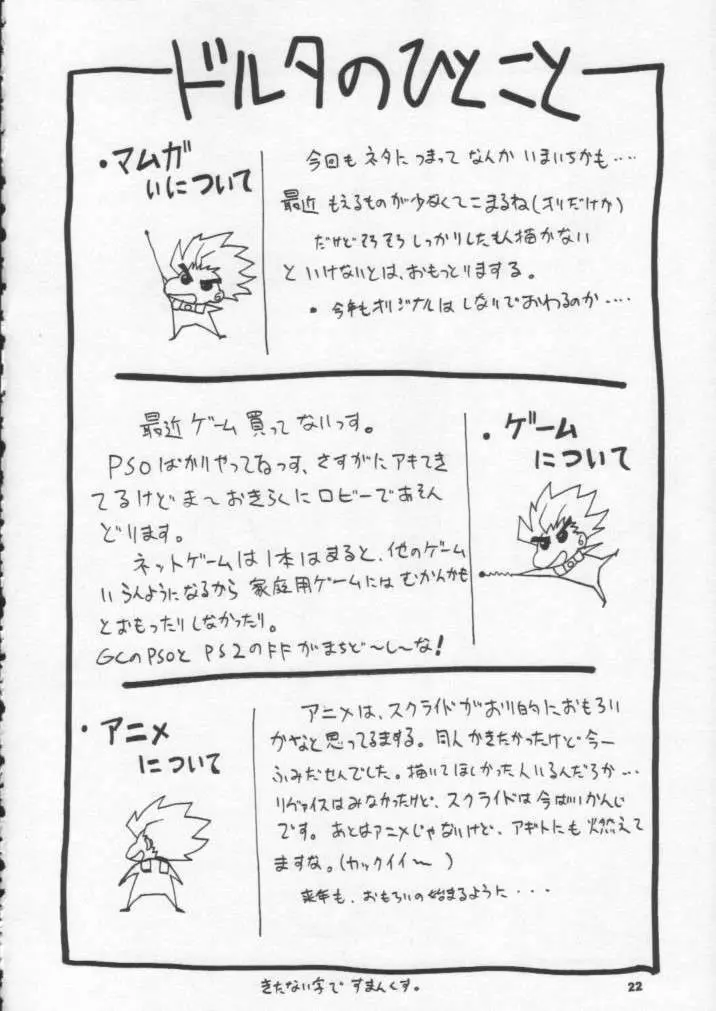 ドルタのひとこと
・マムガ
いについて
今回も ネタに つまって なんか いまいちかも‥‥
最近 もえるものが少なくてこまるね(オレだけか)
だけどそろそろ しっかりしたもん描かない
と いけないとは、おもっとりまする。
・今年もオリジナルは しないでおわるのか‥‥
・ゲーム
について
最近 ゲーム 買って ないっす。
PSOばかりやってるっす、さすがに アキてき
てるけど ま〜 おきらくに ロビーであそん
どります。
ネットゲームは 1本はまると、他のゲーム
いらんようになるから 家庭用ゲームには むかんかも
とおもったりしなかったり。
GCのPSOと PS2のFFがまちど〜し〜な!
・アニメ
について
アニメは、スクライドがおり的におもろい
かなと思ってるまする。同人かきたかったけど今一
ふみだせんでした。描いてほしかった人いるんだろか‥‥
リヴァイスはみなかったけど、スクライドは今はいいかんじ
です。あとはアニメじゃないけど、アギトにも 燃えて
ますな。(カックイイ〜 )
来年も、おもろいの始まるように・・・
きたない字で すまんくす。
22